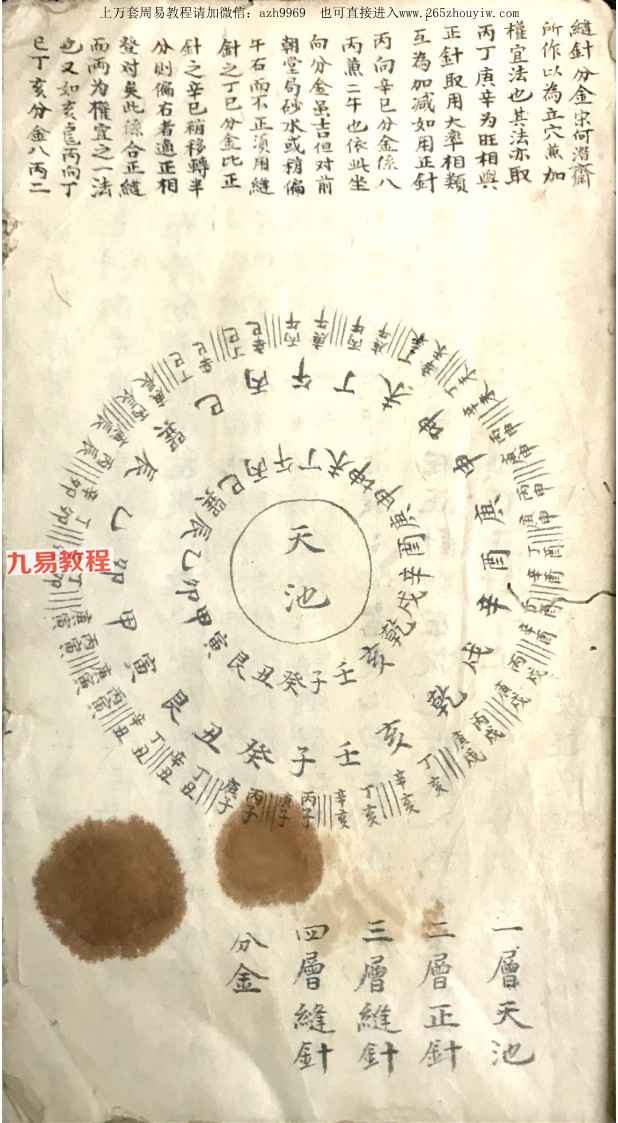 上万套周易教程请加微信：azh9969 也可直接进入www.265zhouyiw.com
縫針分金宋何潛齋
所作以為立穴兼加
權宜法也其法亦取
丙丁庚辛為旺相與
正針取用大率相類
互為加減如用正針
丙向辛巳分金係八
丙兼二午也依此坐
向分金虽吉但对前
朝堂局砂水或稍偏
午右而不正須用縫
針之丁巳分金比正
針之辛巳稍移轉半
分則偏右者適正相
登对矣此係合正縫
而兩为權宜之一法
也又如亥龍丙向丁
巳丁亥分金八丙二
天池
壬子癸丑艮寅甲卯乙辰巽巳丙午丁未坤申庚酉辛戌乾亥
壬子癸丑艮寅甲卯乙辰巽巳丙午丁未坤申庚酉辛戌乾亥
丙子
庚子
丙子
庚子
丁丑
辛丑
丁丑
辛丑
丙寅
庚寅
丙寅
庚寅
丁巳
辛巳
丁巳
辛巳
丙午
庚午
丙午
庚午
丙申
庚申
丙申
庚申
丁酉
辛酉
丁酉
辛酉
丙戌
庚戌
丙戌
庚戌
丁亥
辛亥
丁亥
辛亥
九易教程
一層天池
二層正針
三層縫針
四層縫針
分金